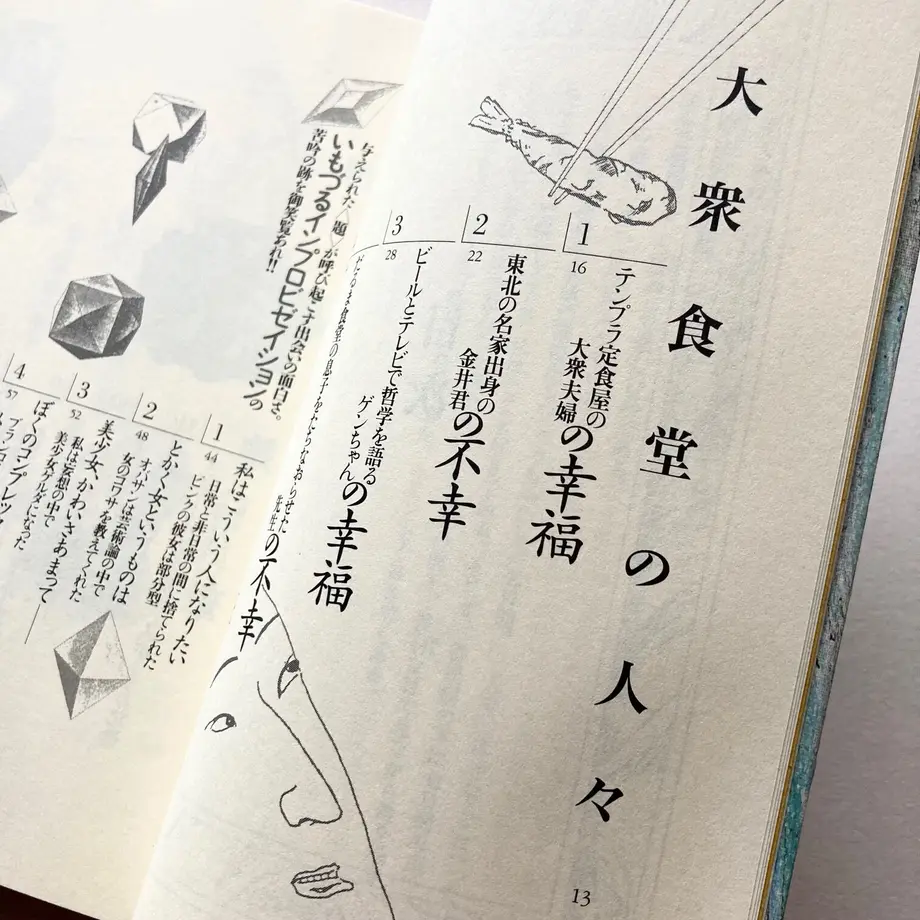 大衆食堂の人々
1
16
テンプラ定食屋の
大衆夫婦の幸福
2
22
東北の名家出身の
金井君の不幸
3
28
ビールとテレビで哲学を語る
ゲンちゃんの幸福
だるま食堂の息子をたちなおらせた
先生の不幸
13
与えられた〈題〉が呼び起こす出会いの面白さ。
いもづるインプロビゼイションの
苦吟の跡を御笑覧あれ!!
1
44
私はこういう人になりたい
日常と非日常の間に捨てられた
ピンクの彼女は部分型
2
48
とかく女というものは
オッサンは芸術論の中で
女のコワサを教えてくれた
3
52
美少女、かわいさあまって
私は妄想の中で
美少女ゲルダになった
4
57
ぼくのコンプレックス